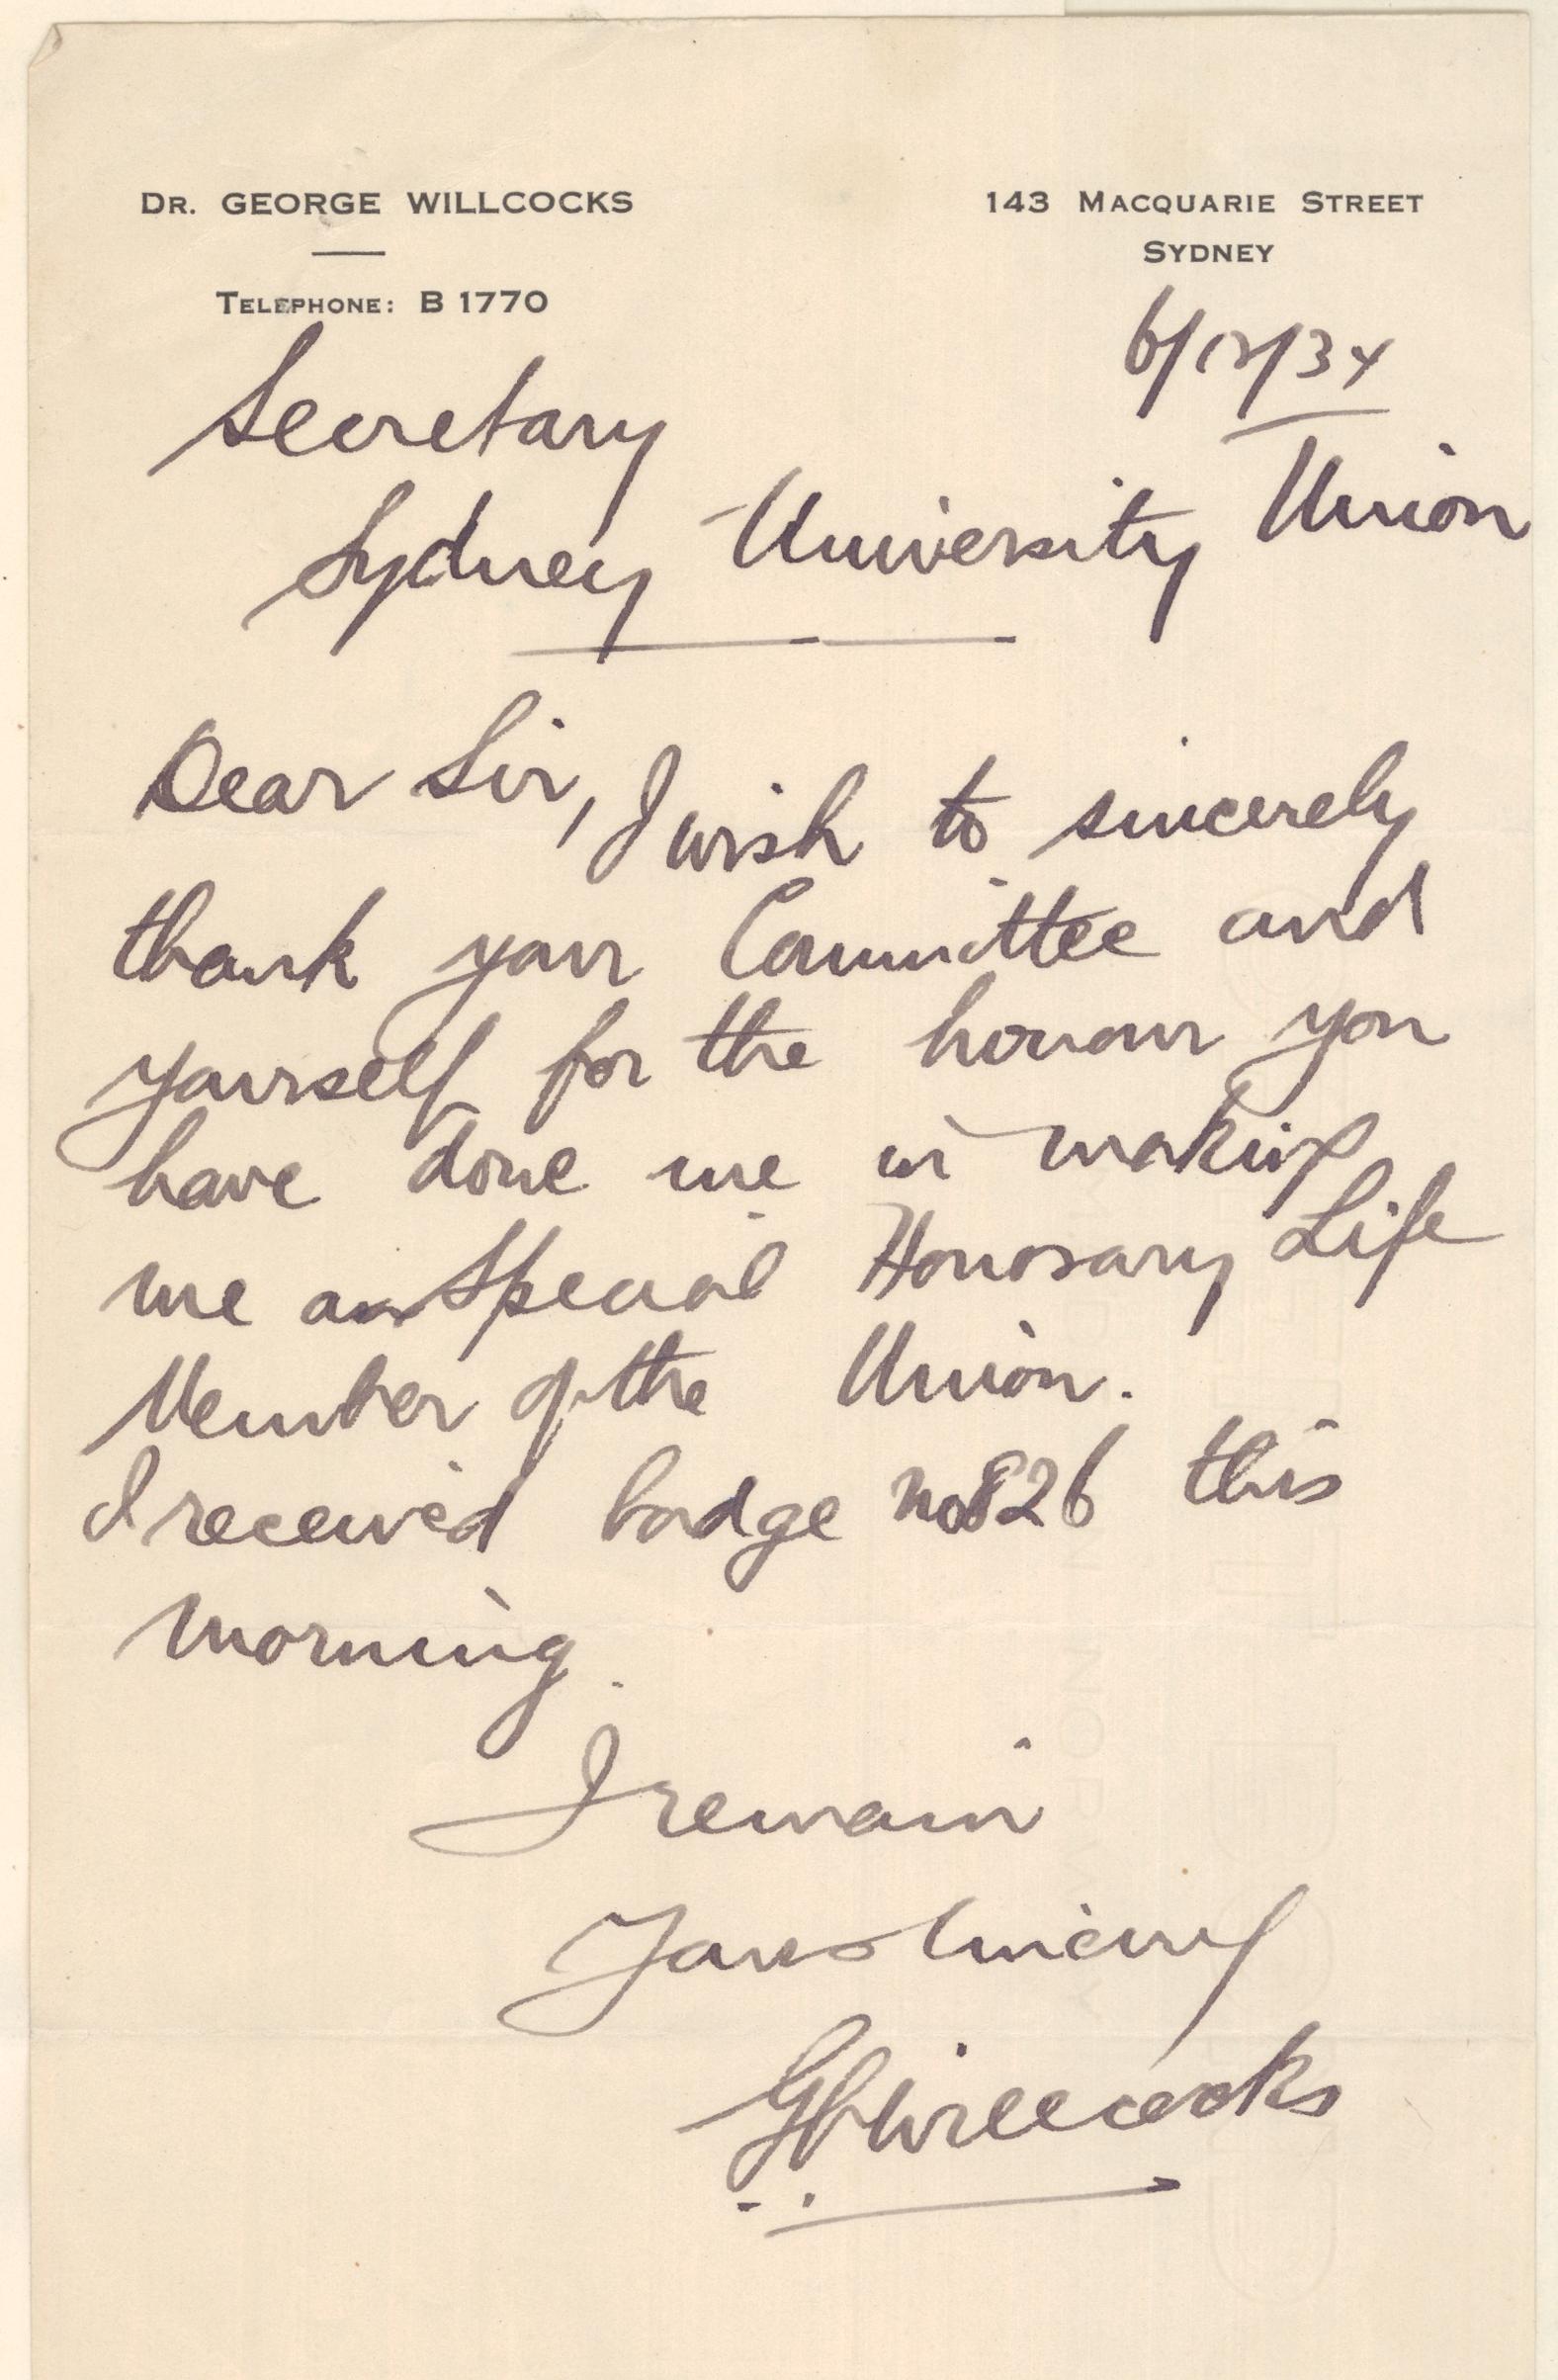 DR. GEORGE WILLCOCKS
TELEPHONE: B 1770
143 MACQUARIE STREET
SYDNEY
6/12/34
Secretary
Sydney University Union
Dear Sir, I wish to sincerely
thank your Committee and
yourself for the honour you
have done me in making
me a Special Honorary Life
Member of the Union.
I received badge no 826 this
morning.
I remain
Yours sincerely
G Willcocks